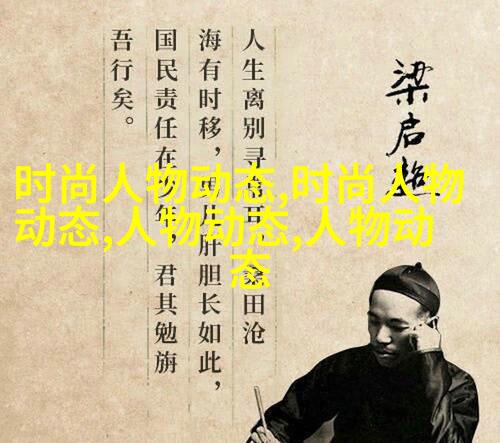 梁启超
人生离别寻常事,桑田沧
海有时移,肝胆长如此,
国民责任在少年,君其勉旃
吾行矣。
时尚人物动态,时尚人物
动态,人物动态,人物动
态